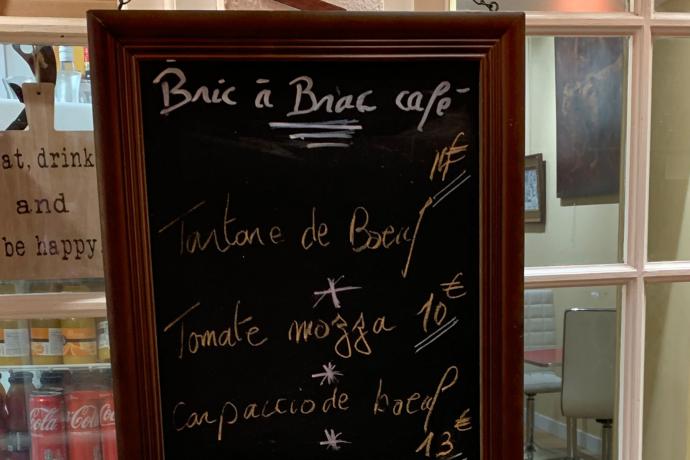 Bric à Brac café
14€
Tartare de Boeuf
Tomate mozza 10€
carpaccio de boeuf
13€
at, drink
and
be happy
Cola
Cola